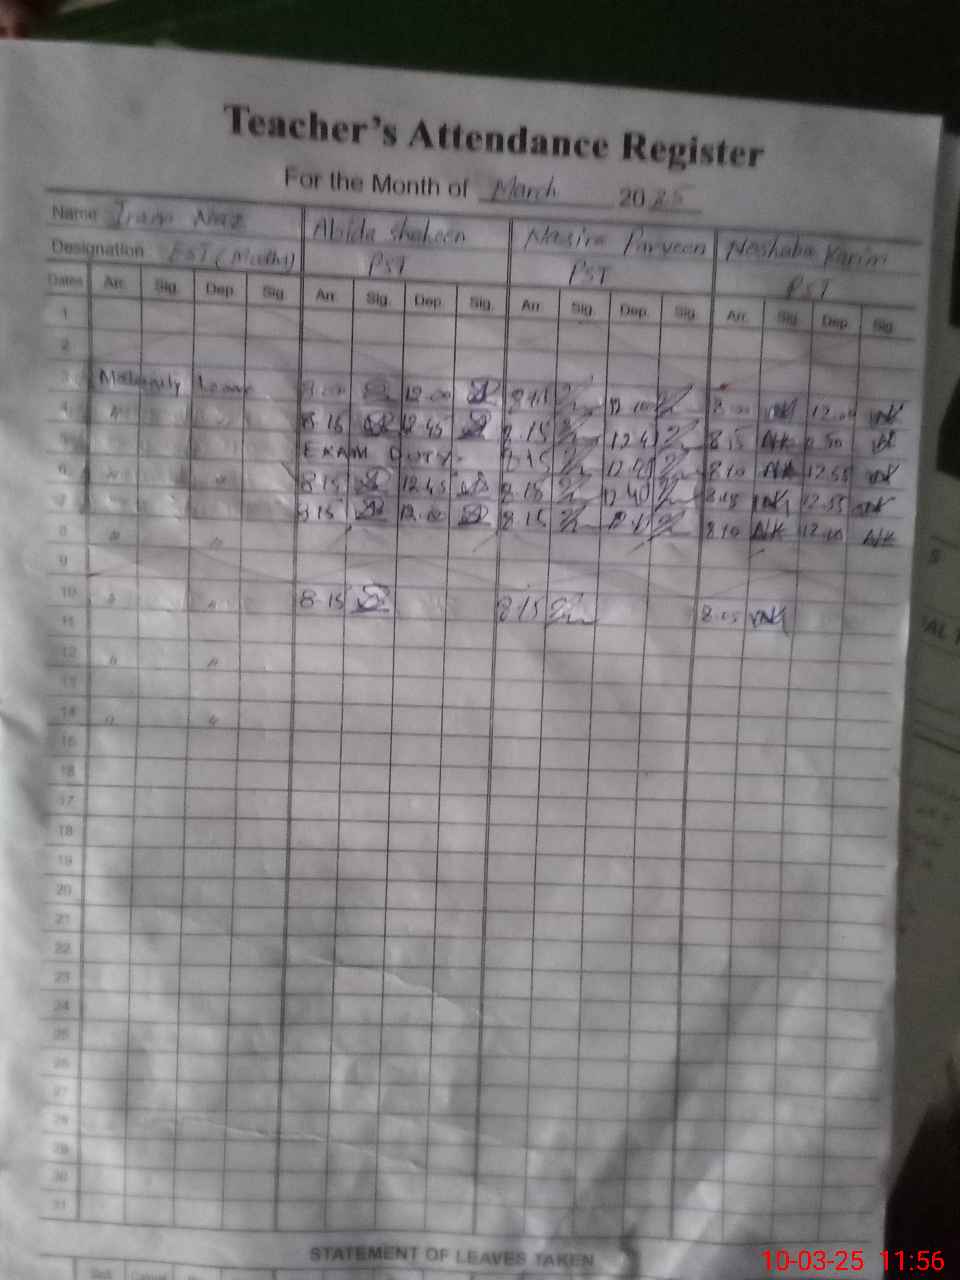 Teacher's Attendance Register
For the Month of March 2025
Name Iram Naz Abida Shaheen Nasira Parveen Noshaba Karim
Designation EST (Maths) PST PST PST
Dates Arr. Sig. Dep. Sig. Arr. Sig. Dep. Sig. Arr. Sig. Dep. Sig. Arr. Sig. Dep. Sig.
1
2
3 Maternity Leave 8.00 12.00 8.00 12.00
4 " 8.15 12.45 8.15 8.15 NK
5 EXAM DUTY. 8.15 8.10 NK 12.55
6 " " 8.15 12.45 8.15 12.40 12.55
7 8.15 12.00 8.15 8.10 NK 12.00 NK
8 " "
9
10 " " 8.15 8.15 8.05 NK
11
12 " "
13
14 " "
15
16
17
18
19
20
21
22
23
24
25
26
27
28
29
30
31
STATEMENT OF LEAVES TAKEN
10-03-25 11:56